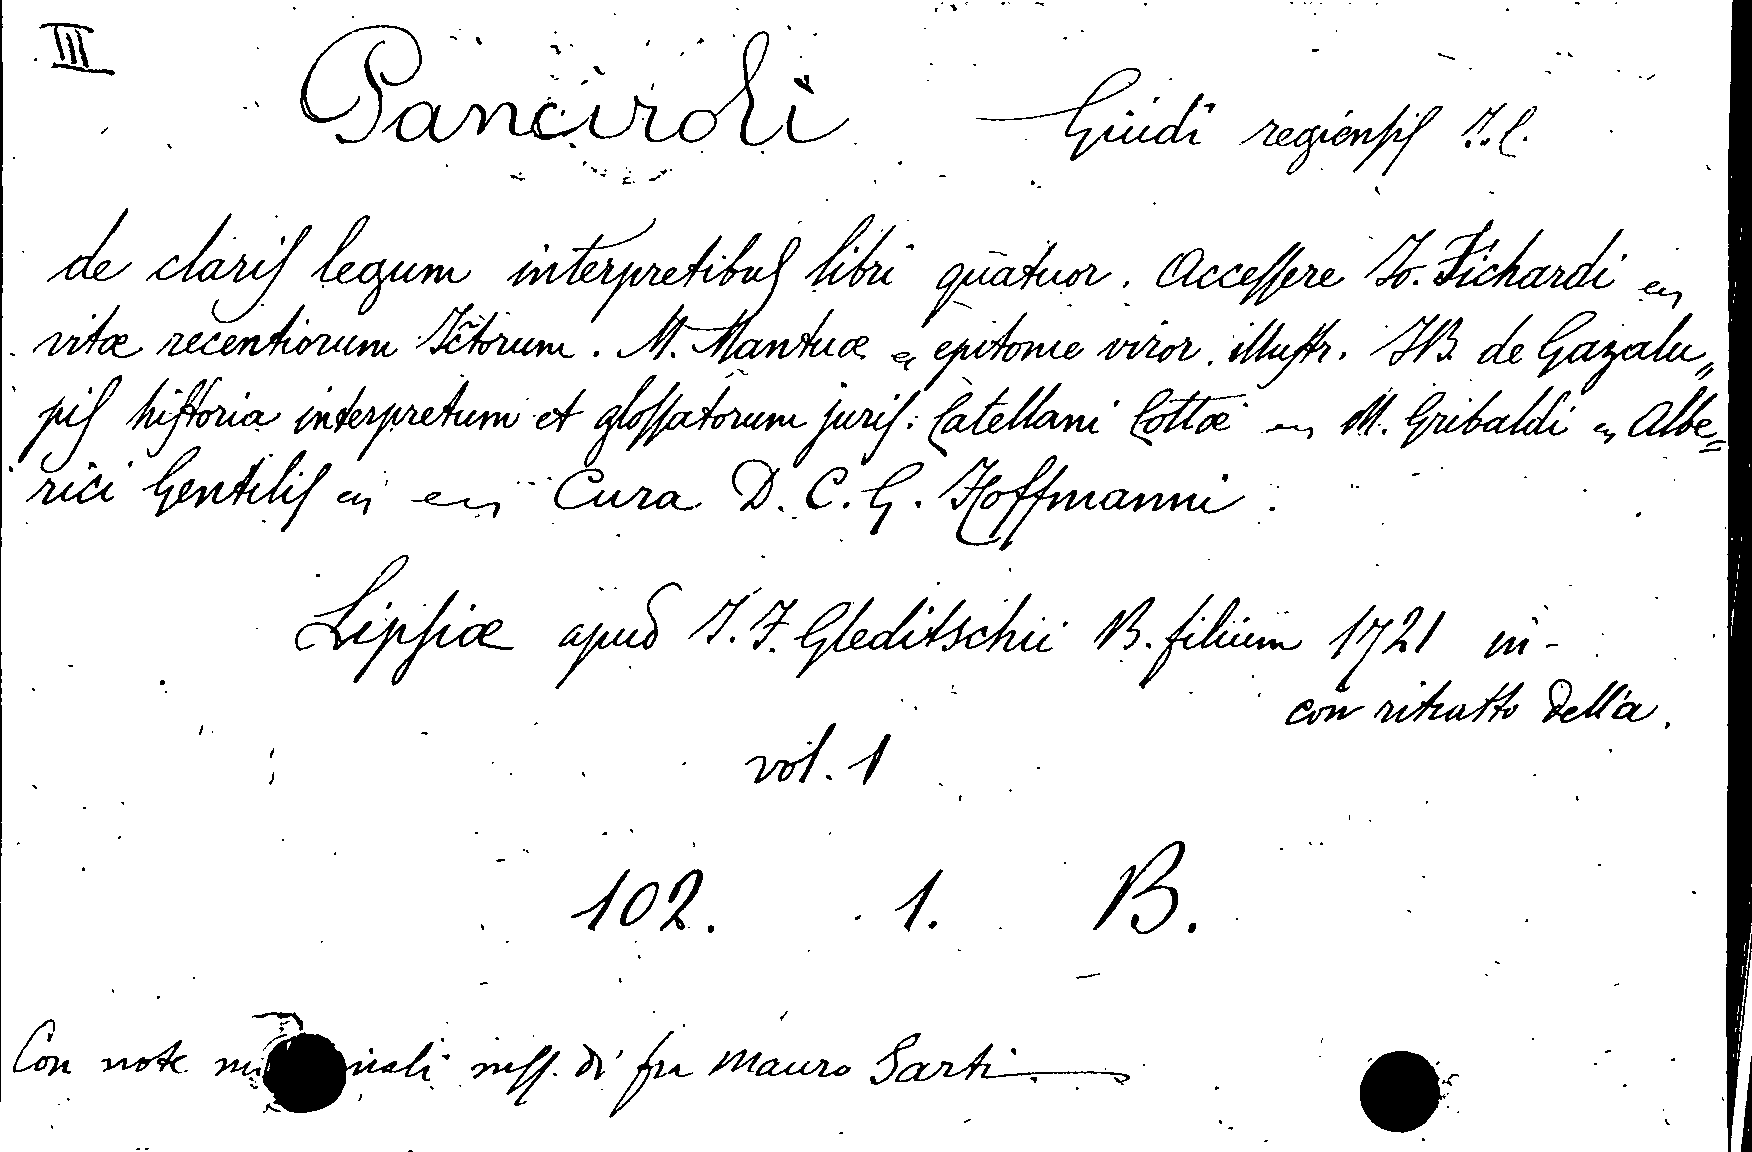 III
Panciroli Guidi regiensis I.C.
de claris legum interpretibus libri quatuor. Accessere Jo. Fichardi
vitæ recentiorum Ictorum. M. Mantuæ epitome viror. illustr. JB. de Gazalu„
pis historia interpretum et glossatorum juris: Catellani Cottæ M. Gribaldi Albe„
rici Gentilis Cura D. C. G. Hoffmanni.
Lipsiæ apud I. F. Gleditschii B. filium 1721 in-
con ritratto dell'a.
vol. 1
102. 1. B.
Con note mss. di fra Mauro Sarti